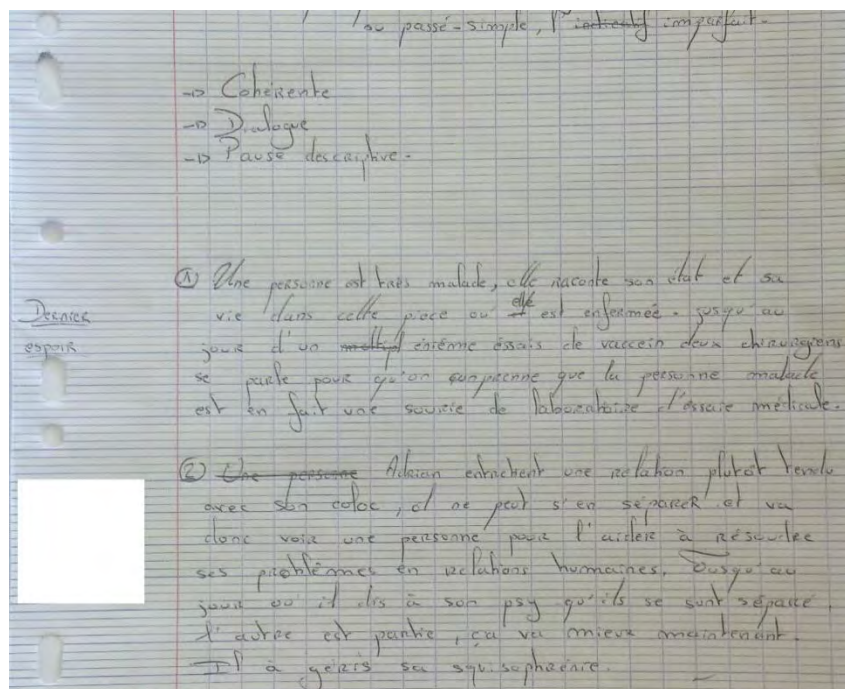 ou passé-simple, l'indicatif imparfait.
-> Cohérente
-> Dialogue
-> Pause descriptive.
Dernier
espoir
① Une personne est très malade, elle raconte son état et sa
vie dans cette pièce où elle est enfermée. jusqu'au
jour d'un énième éssais de vaccein deux chirurgiens
se parle pour qu'on comprenne que la personne malade
est en fait une sourie de laboratoire d'éssaie médicale.
② Une personne Adrian entretient une relation plutôt tendu
avec son coloc, il ne peut s'en séparer et va
donc voir une personne pour l'aider à résoudre
ses problèmes en relations humaines. Jusqu'au
jour où il dis à son psy qu'ils se sont séparé,
l'autre est partie, ça va mieux maintenant.
Il à géris sa squisophrénie.